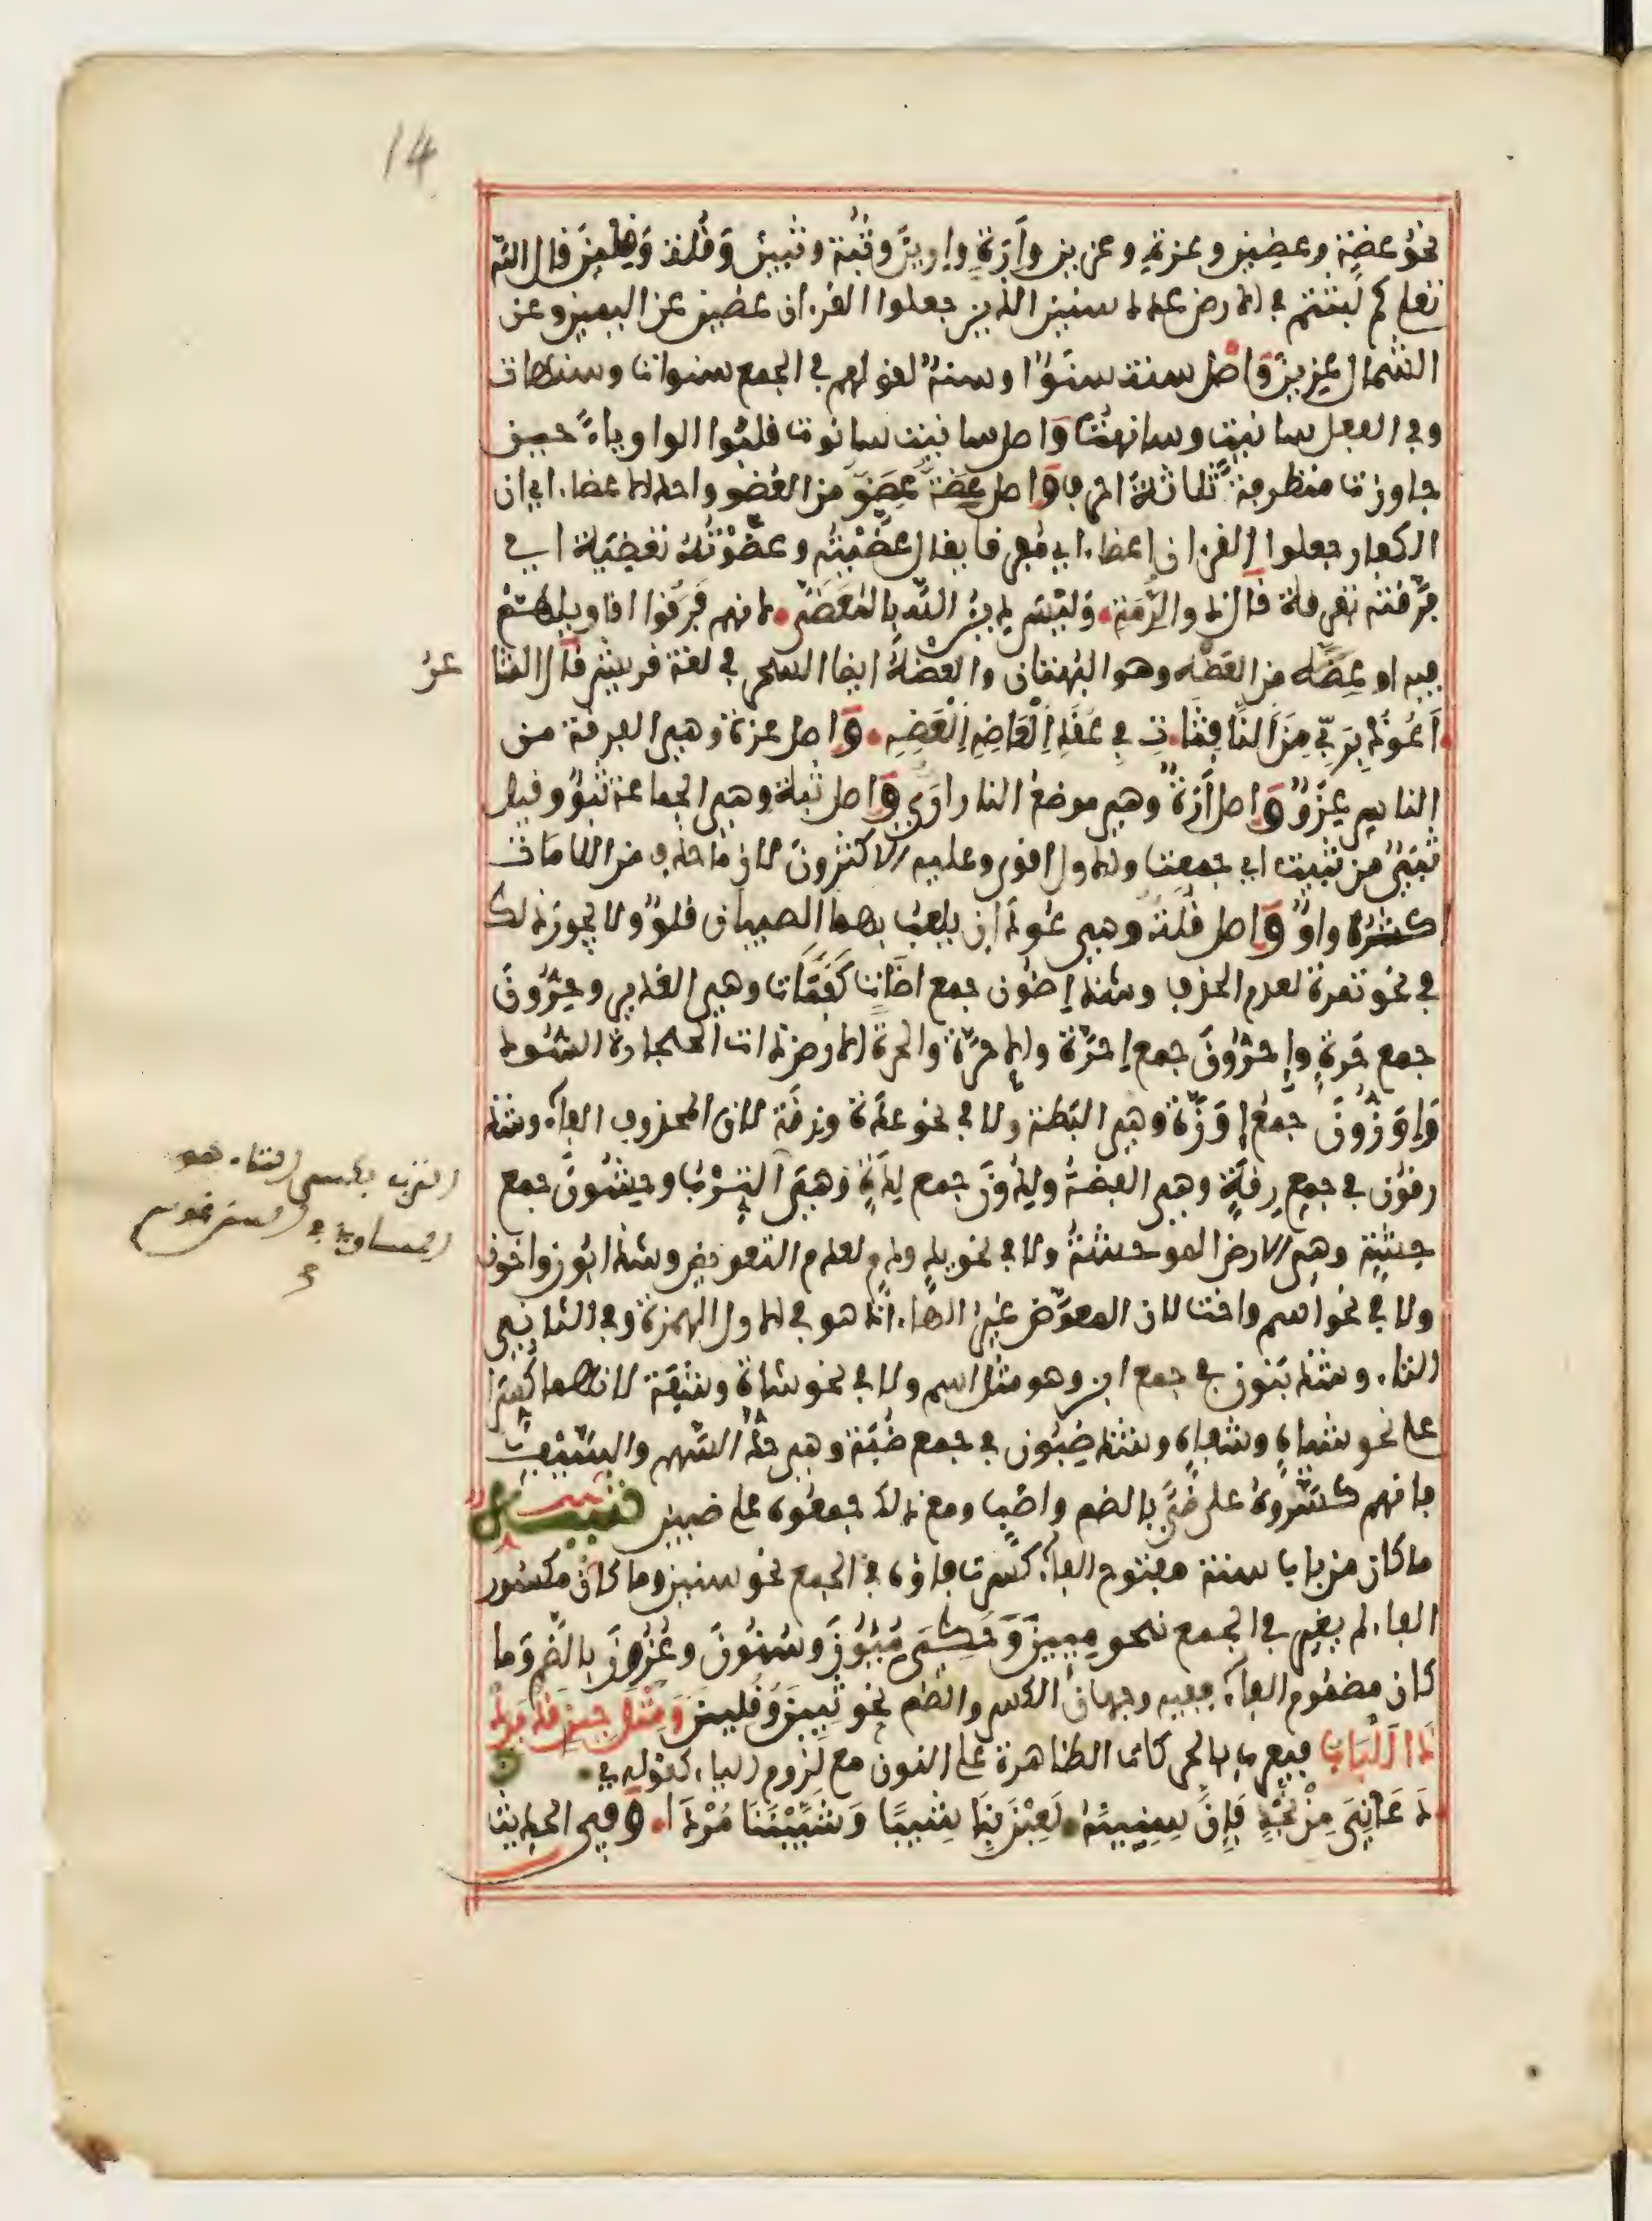 14
نحو عضة وعضين وعزة وعزين وإرة وإرين وثبة وثبين وقلة وقلين قال الله
تعلى كم لبثتم في الارض عدد سنين الذين جعلوا القرءان عضين عن اليمين وعن
الشمال عزين واصل سنة سنو او سنه لقولهم في الجمع سنوات وسنهات
وفي الفعل سانيت وسانهت واصل سانيت سانوت قلبوا الواو ياء حين
جاوزت متطرفة ثلاثة احرف واصل عضة عضو من العضو واحد الاعضاء اي ان
الكفار جعلوا القرءان اعضاء اي مفرقا يقال عضيته وعضوته تعضية اي
فرقته تفرقة قال ذو الرمة وليس دين الله بالمعضى لانهم فرقوا اقاويلهم
فيه او عضه من العضه وهو البهتان والعضه ايضا السحر في لغة قريش قال الشا
عر
اعوذ بربي من النافثات في عقد العاضه المعضه واصل عزة وهي الفرقة من
الناس عزو واصل إرة وهي موضع النار اري واصل ثبة وهي الجماعة ثبو وقيل
ثبي من ثبيت اي جمعت والاول اقوى وعليه الاكثرون لان ما حذف من اللامات
اكثره واو واصل قلة وهي عودان يلعب بهما الصبيان قلو ولا يجوز ذلك
في نحو تمرة لعدم الحذف وشذ إضون جمع اضاة كقناة وهي الغدير وحرون
جمع حرة وإحرون جمع إحرة والاحرة والحرة الارض ذات الحجارة السود
وإوزون جمع إوزة وهي البطة ولا في نحو عدة وزنة لان المحذوف الفاء وشذ
رقون في جمع رقة وهي الفضة ولدون جمع لدة وهي الترب وحشون جمع
الترب بكسر التاء هو
المساوي في السن قاموس
حشة وهي الارض الموحشة ولا في نحو يد ودم لعدم التعويض وشذ ابون واخون
ولا في نحو اسم واخت لان المعوض غير الهاء اذ هو في الاول الهمزة وفي الثاني
التاء وشذ بنون في جمع ابن وهو مثل اسم ولا في نحو شاة وشفة لانهما كسرا
على نحو شياه وشفاه وشذ ضبون في جمع ضبة وهي حد السهم والسيف
فانهم كسروه على ضبى بالضم واضب ومع ذلك جمعوه على ضبين تنبيه
ما كان من باب سنة مفتوح الفاء كسرت فاؤه في الجمع نحو سنين وما كان مكسور
الفاء لم يغير في الجمع نحو ميين وحكي مئون وسنون وعزون بالضم وما
كان مضموم الفاء ففيه وجهان الكسر والضم نحو ثبين وقلين ومثل حين قد يرد
ذا الباب فيعرب بالحركات الظاهرة على النون مع لزوم الياء كقوله
دعاني من نجد فإن سنينه لعبن بنا شيبا وشيبننا مردا وفي الحديث